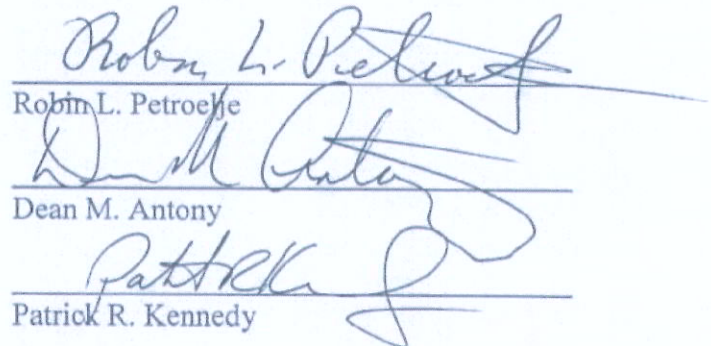 Robin L. Petroelje
Robin L. Petroelje
Dean M Antony
Dean M. Antony
Patrick R. Kennedy